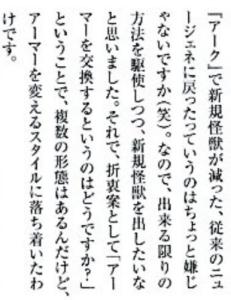 『アーク』で新規怪獣が減った、従来のニュ
ージェネに戻ったっていうのはちょっと嫌じ
ゃないですか（笑）。なので、出来る限りの
方法を駆使しつつ、新規怪獣を出したいな
と思いました。それで、折衷案として「アー
マーを交換するというのはどうですか？」
ということで、複数の形態はあるんだけど、
アーマーを変えるスタイルに落ち着いたわ
けです。